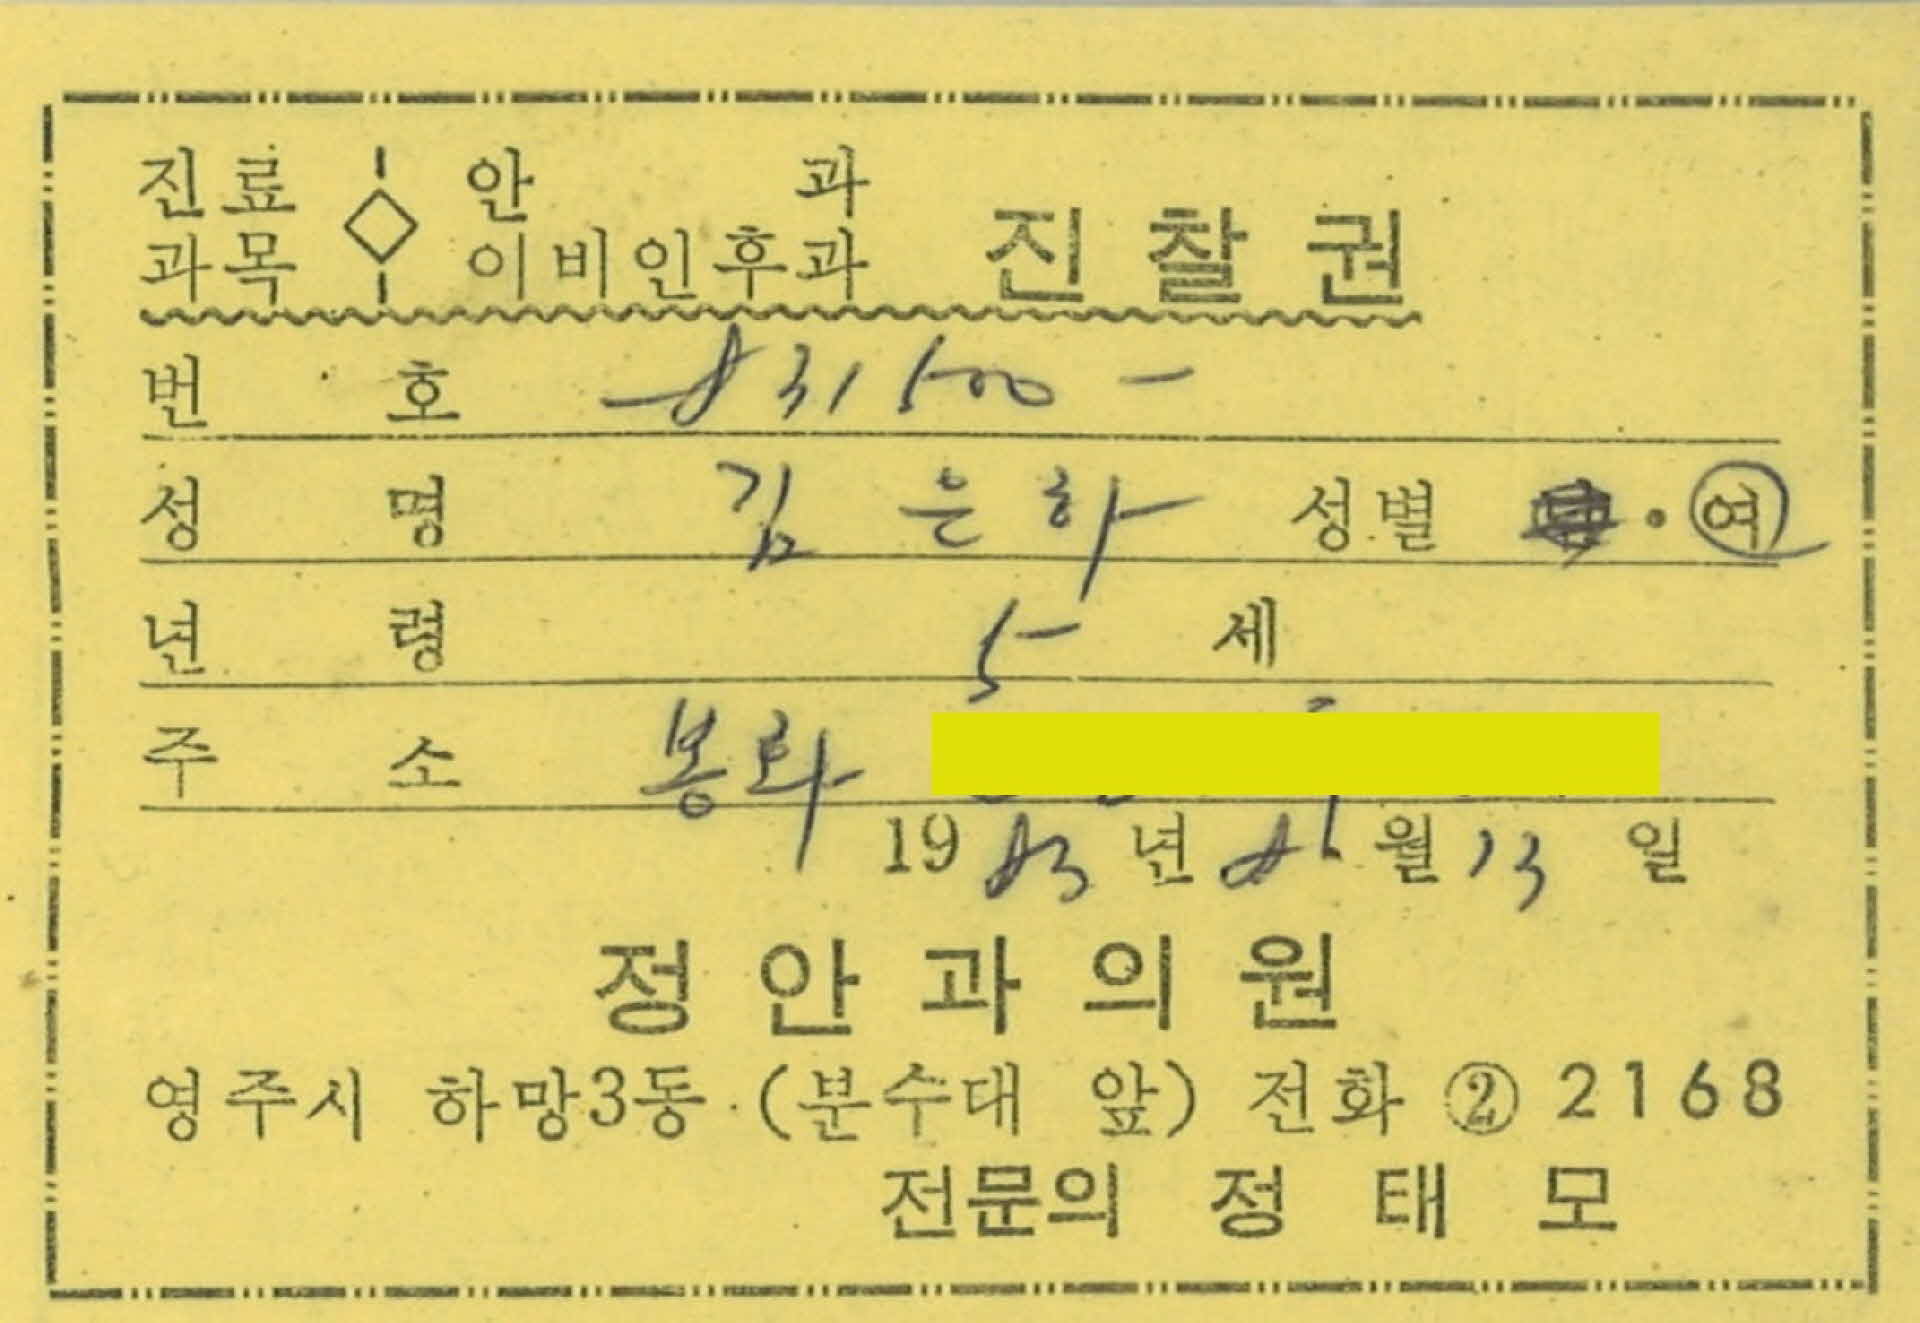 진료 안 과
과목 이비인후과 진찰권
번 호 831500
성 명 김은하 성별 · 여
년 령 5 세
주 소 봉화
1983 년 8 월 13 일
정안과의원
영주시 하망3동 (분수대 앞) 전화 ② 2168
전문의 정 태 모